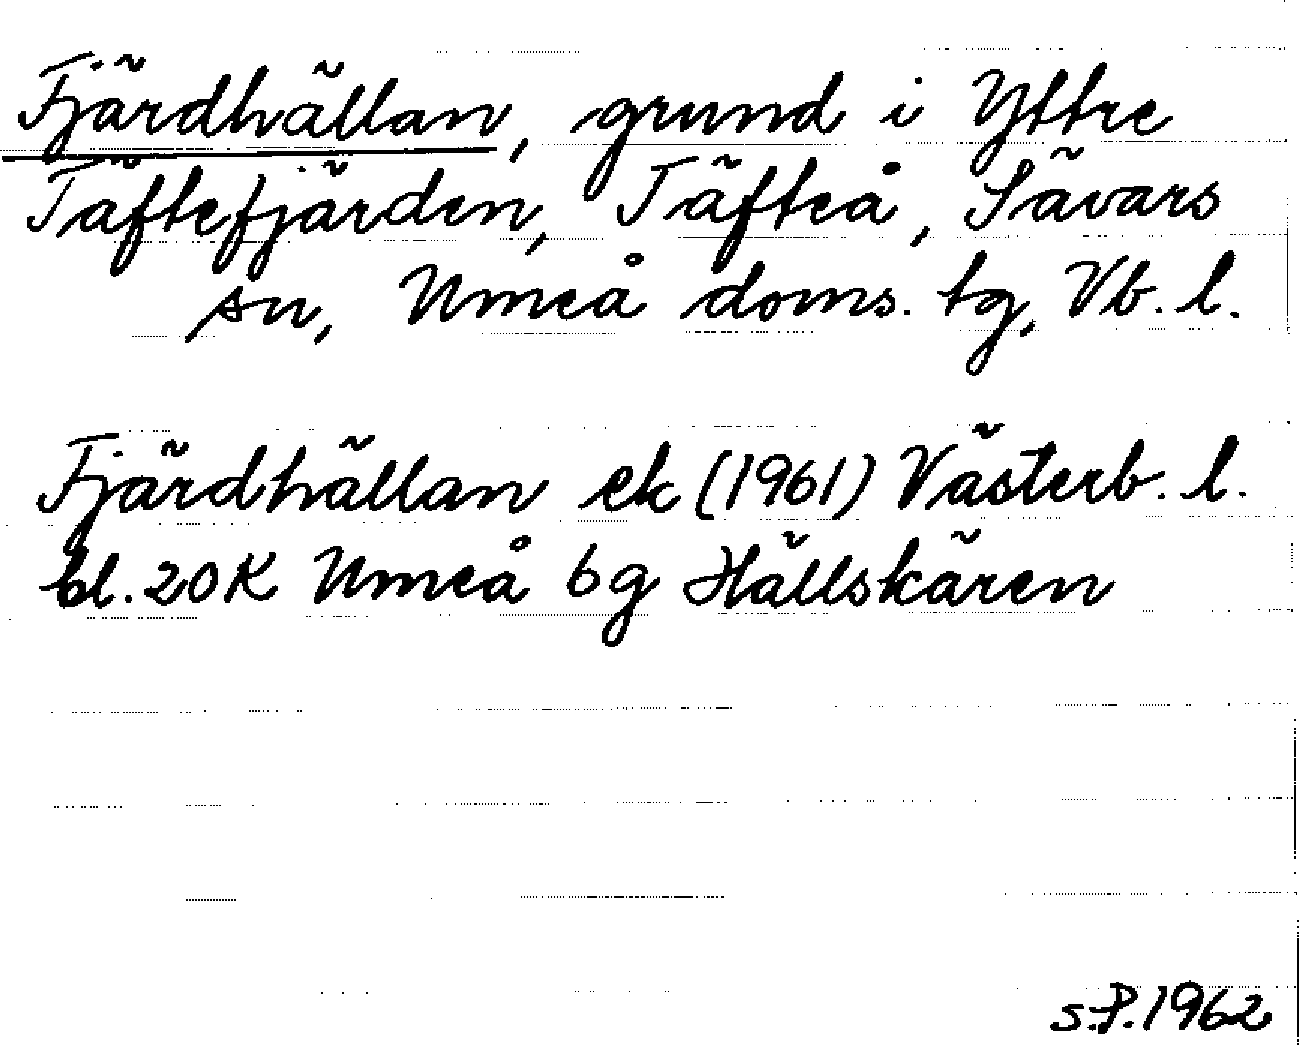 Fjärdhällan, grund i Yttre
Täftefjärden, Täfteå, Sävars
sn, Umeå doms. tg, Vb. l.
Fjärdhällan ek (1961) Västerb. l.
bl. 20 K Umeå 6g Hällskären
S.P. 1962